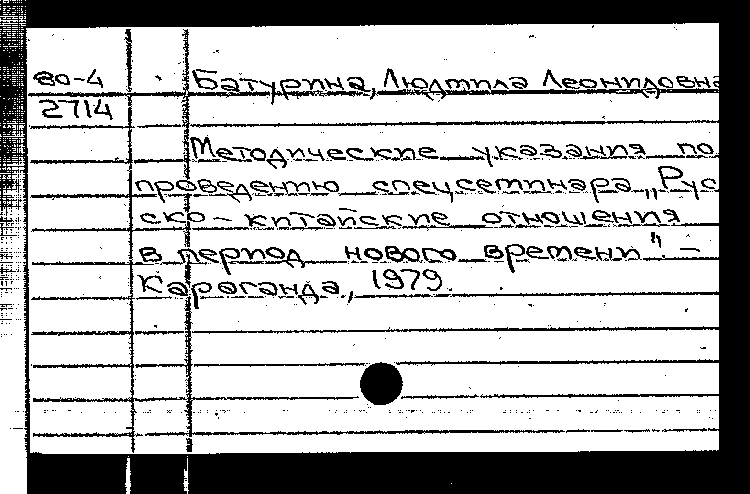 80-4 Батурина, Людмила Леонидовна
2714
Методические указания по
проведению спецсеминара „Рус
ско-китайские отношения
в период нового времени". –
Караганда, 1979.